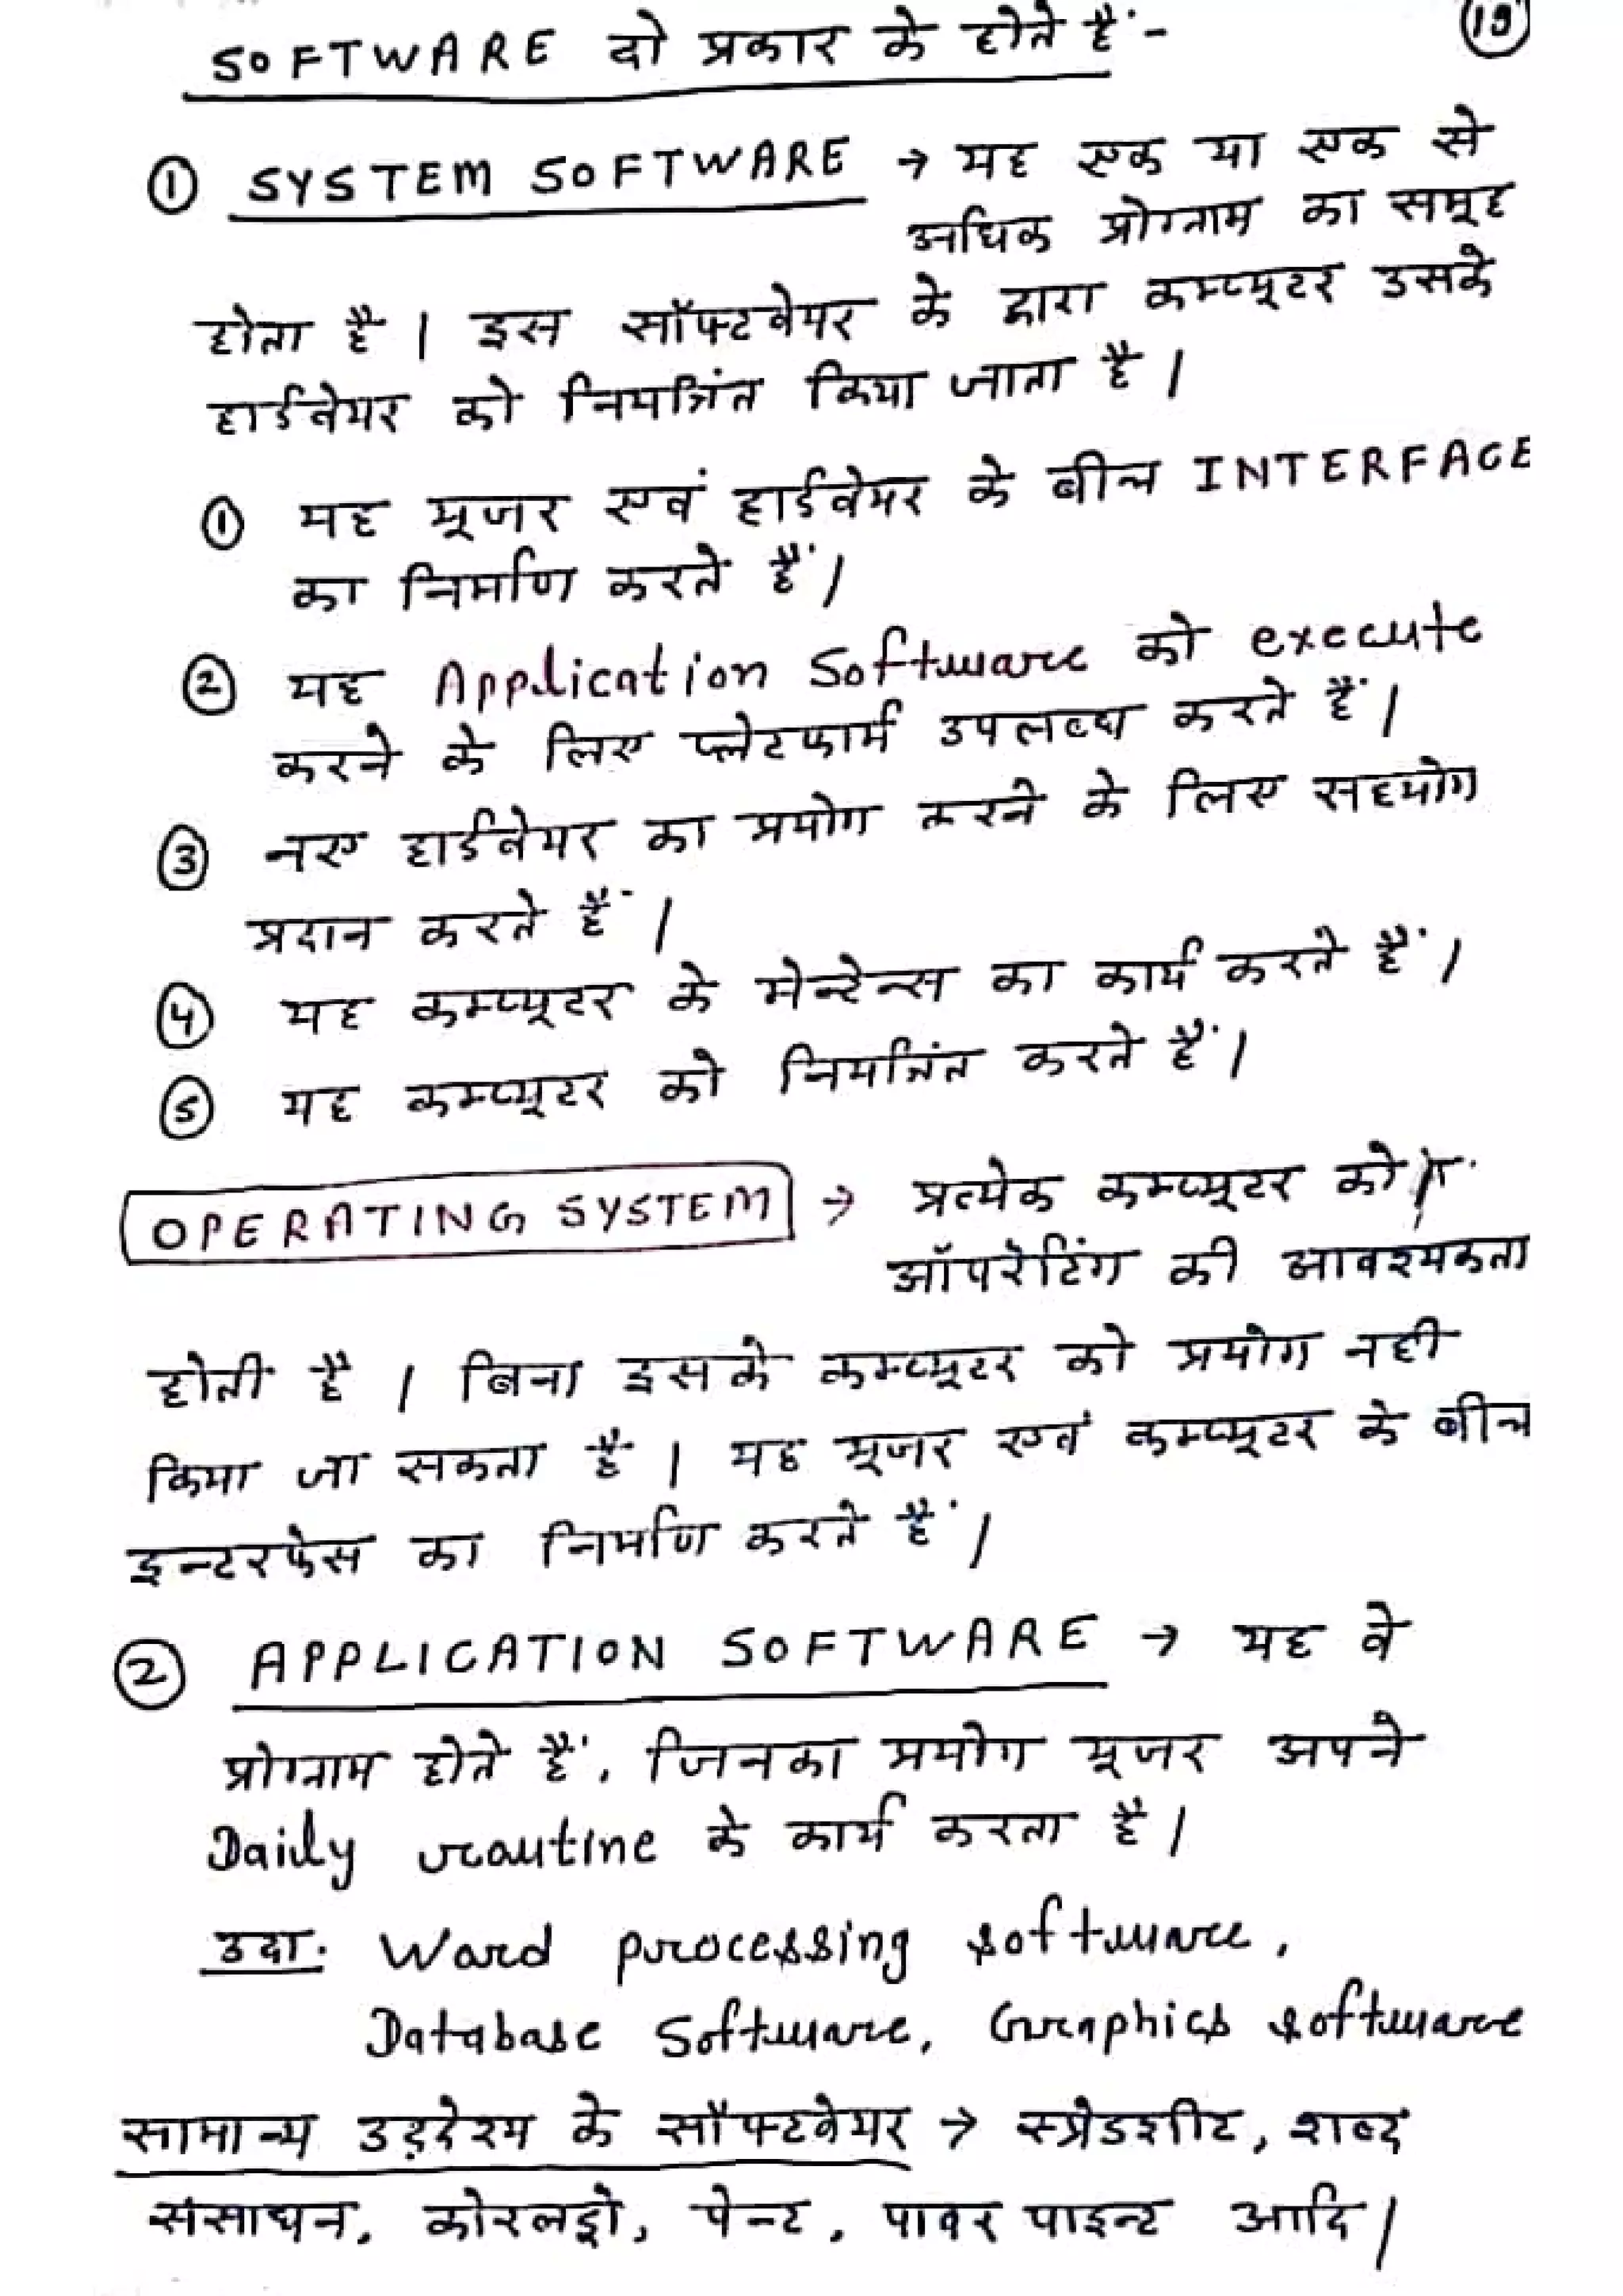 SOFTWARE दो प्रकार के होते हैं :-
① SYSTEM SOFTWARE → यह एक या एक से
अधिक प्रोग्राम का समूह
होता है | इस सॉफ्टवेयर के द्वारा कम्प्यूटर उसके
हार्डवेयर को नियत्रिंत किया जाता है |
① यह यूजर एवं हार्डवेयर के बीच INTERFACE
का निर्माण करते हैं |
② यह Application Software को execute
करने के लिए प्लेटफार्म उपलब्ध करते हैं |
③ नए हार्डवेयर का प्रयोग करने के लिए सहयोग
प्रदान करते हैं |
④ यह कम्प्यूटर के मेन्टेन्स का कार्य करते हैं |
⑤ यह कम्प्यूटर को नियत्रिंत करते हैं |
OPERATING SYSTEM → प्रत्येक कम्प्यूटर को
ऑपरेटिंग की आवश्यकता
होती है | बिना इसके कम्प्यूटर को प्रयोग नही
किया जा सकता है | यह यूजर एवं कम्प्यूटर के बीच
इन्टरफेस का निर्माण करते हैं |
② APPLICATION SOFTWARE → यह वे
प्रोग्राम होते हैं, जिनका प्रयोग यूजर अपने
Daily routine के कार्य करता है |
उदा. Word processing software,
Database Software, Graphics software
सामान्य उद्देश्य के सौफ्टवेयर → स्प्रेडशीट, शब्द
संसाधन, कोरलड्रो, पेन्ट, पावर पाइन्ट आदि |